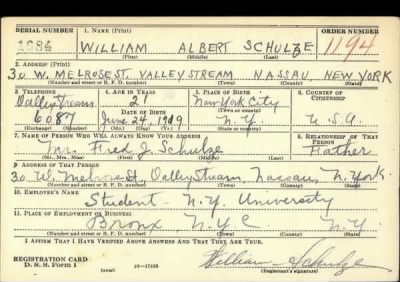 SERIAL NUMBER 1. NAME (Print) ORDER NUMBER
1986 WILLIAM ALBERT SCHULZE 1194
(First) (Middle) (Last)
2. ADDRESS (Print)
30 W. MELROSE ST. VALLEY STREAM, NASSAU, NEW YORK
(Number and street or R. F. D. number) (Town) (County) (State)
3. TELEPHONE 4. AGE IN YEARS 5. PLACE OF BIRTH 6. COUNTRY OF CITIZENSHIP
Valley Stream 21 New York City
DATE OF BIRTH (Town or county)
6087 June 24, 1919 N.Y. U.S.A.
(Exchange) (Number) (Mo.) (Day) (Yr.) (State or country)
7. NAME OF PERSON WHO WILL ALWAYS KNOW YOUR ADDRESS 8. RELATIONSHIP OF THAT PERSON
Mr. Fred J. Schulze Father
(Mr., Mrs., Miss) (First) (Middle) (Last)
9. ADDRESS OF THAT PERSON
30 W. Melrose St., Valley Stream, Nassau, N. York
(Number and street or R. F. D. number) (Town) (County) (State)
10. EMPLOYER'S NAME
Student - N.Y. University
11. PLACE OF EMPLOYMENT OR BUSINESS
Bronx N.Y.C. N.Y.
(Number and street or R. F. D. number) (Town) (County) (State)
I AFFIRM THAT I HAVE VERIFIED ABOVE ANSWERS AND THAT THEY ARE TRUE.
REGISTRATION CARD William Schulze
D. S. S. Form 1 (over) (Registrant's signature)